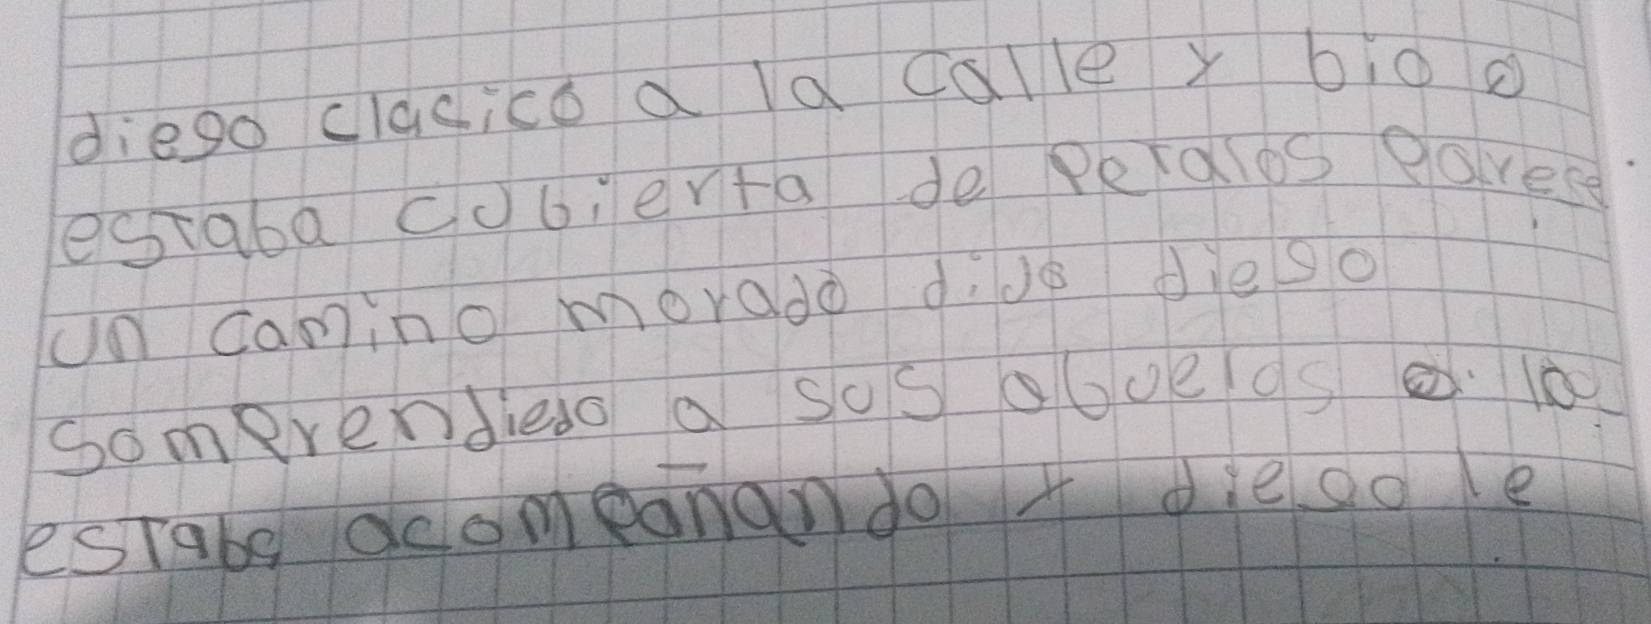 diego clacico a la calle y bio
estaba cubierta de petalos parese
un camino morado dijo diego
somprendieso a sus abuelos la
estaba acompañando y diego le